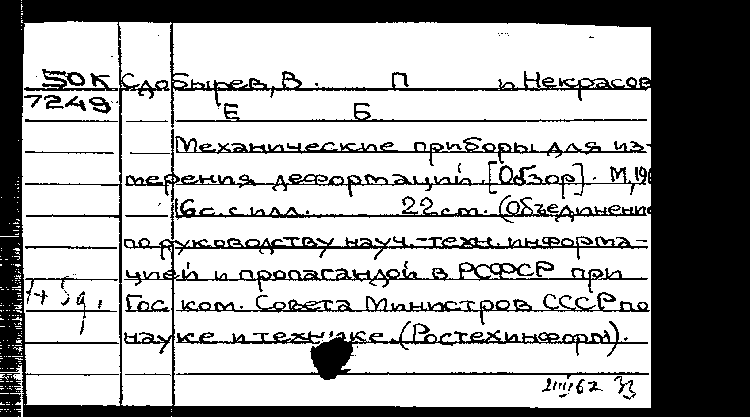 50К Сдобырев, В. П и Некрасов
7249 Е Б
Механические приборы для из-
мерения деформаций. [Обзор]. М, 196
16с. с илл. 22 см. (Объединение
по руководству науч.-техн. информа-
цией и пропагандой в РСФСР при
Гос ком. Совета Министров СССР по
науке и технике. (Ростехинформ).
62